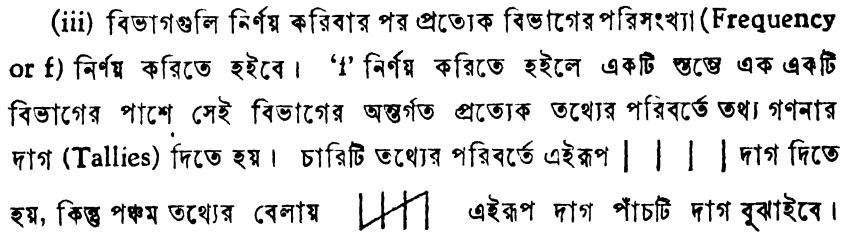 (iii) বিভাগগুলি নির্ণয় করিবার পর প্রত্যেক বিভাগের পরিসংখ্যা (Frequency
or f) নির্ণয় করিতে হইবে। ‘f’ নির্ণয় করিতে হইলে একটি স্তম্ভে এক একটি
বিভাগের পাশে সেই বিভাগের অন্তর্গত প্রত্যেক তথ্যের পরিবর্তে তথ্য গণনার
দাগ (Tallies) দিতে হয়। চারিটি তথ্যের পরিবর্তে এইরূপ | | | | দাগ দিতে
হয়, কিন্তু পঞ্চম তথ্যের বেলায় এইরূপ দাগ পাঁচটি দাগ বুঝাইবে।